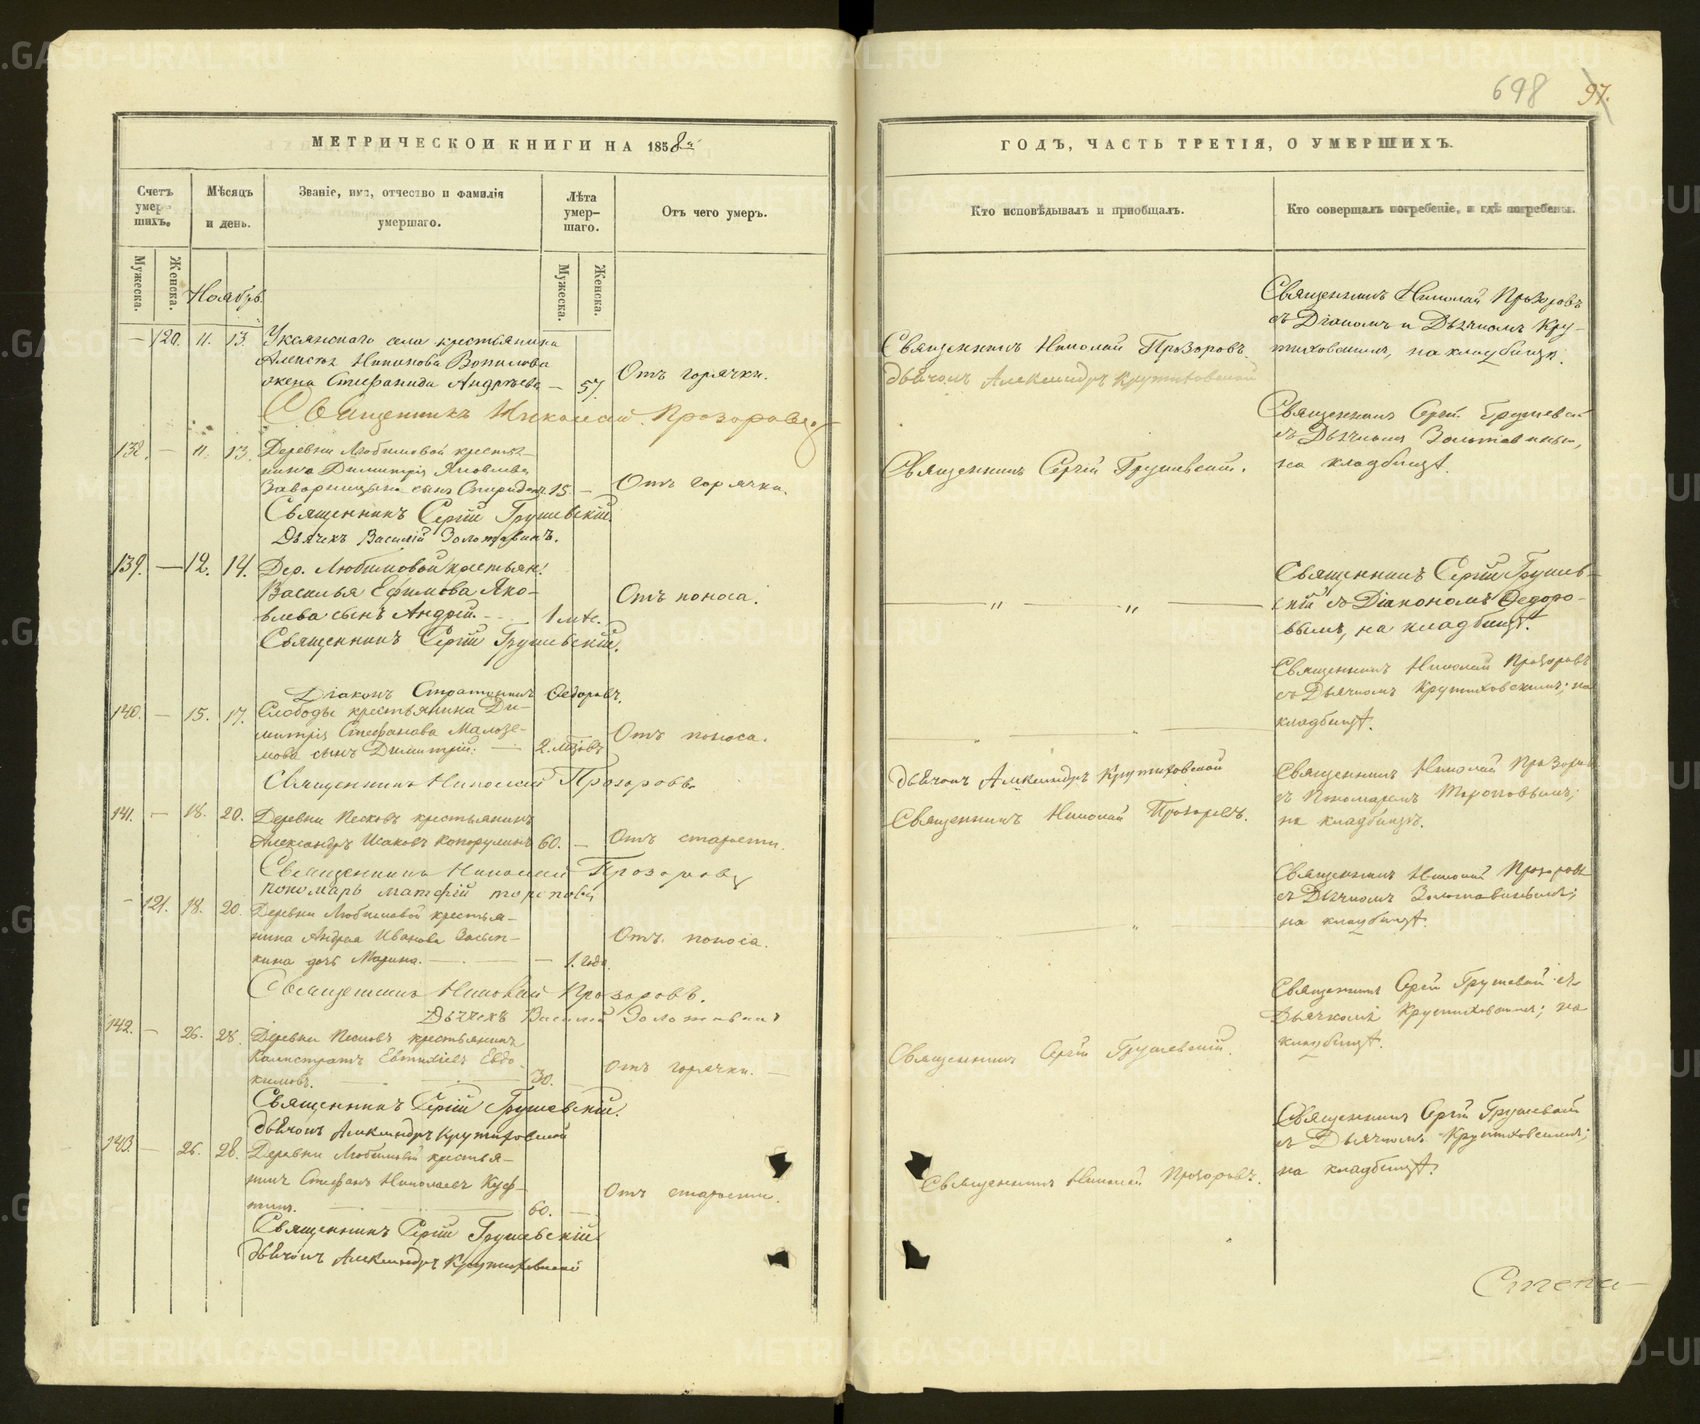 METRIKI.GASO-URAL.RU
698
97.
МЕТРИЧЕСКОЙ КНИГИ НА 1858й
Счетъ умер-шихъ.
Мѣсяцъ и день.
Званіе, имя, отчество и фамилія умершаго.
Лѣта умер-шаго.
Отъ чего умеръ.
Мужеска.
Женска.
Мужеска.
Женска.
Ноябрь
— 120. 11. 13. Уксянскаго села крестьянина
Алексѣя Никонова Вопилова
жена Стефанида Андреева — 57. Отъ горячки.
Священникъ Николай Прозоровъ
138. — 11. 13. Деревни Любимовой крестья-
нина Димитрія Яковлева
Заворницына сынъ Спиридонъ 15. — Отъ горячки.
Священникъ Сергій Грушевскій.
Дьячекъ Василій Золотавинъ.
139. — 12. 14. Дер. Любимовой крестьян.
Василья Ефимова Яко-
влева сынъ Андрей. 1 мѣс. Отъ поноса.
Священникъ Сергій Грушевскій.
Діаконъ Стратоникъ Ѳедоровъ.
140. — 15. 17. Слободы крестьянина Ди-
митрія Стефанова Малозе-
мова сынъ Димитрій. — 2. мѣс. Отъ поноса.
Священникъ Николай Прозоровъ
141. — 18. 20. Деревни Песковъ крестьянинъ
Александръ Исаковъ 60. — Отъ старости.
Священникъ Николай Прозоровъ
пономарь Матфій
— 121. 18. 20. Деревни Любимовой крестья-
нина Андрея Иванова Засып-
кина дочь Марина. — 1. года. Отъ поноса.
Священникъ Николай Прозоровъ.
Дьячекъ Василій Золотавинъ
142. — 26. 28. Деревни Песковъ крестьянинъ
Калистратъ Евдо-
кимовъ. 30. Отъ горячки. —
Священникъ Сергій Грушевскій.
дьячокъ Александръ Крутиховской
143. — 26. 28. Деревни Любимовой крестья-
нинъ Стефанъ Николаевъ
60. — Отъ старости.
Священникъ Сергій Грушевскій
дьячокъ Александръ Крутиховской
ГОДЪ, ЧАСТЬ ТРЕТІЯ, О УМЕРШИХЪ.
Кто исповѣдывалъ и пріобщалъ.
Кто совершалъ погребеніе, и гдѣ погребены.
Священникъ Николай Прозоровъ
дьячокъ Александръ Крутиховской
Священникъ Николай Прозоровъ
съ Діаконъ и Дьячкомъ Кру-
тиховскимъ, на кладбищѣ.
Священникъ Сергій Грушевскій.
Священникъ Сергій Грушевскій
съ Дьячкомъ Золотавинымъ,
на кладбищѣ.
— " — " —
Священникъ Сергій Грушев-
скій съ Діакономъ Ѳедоро-
вымъ, на кладбищѣ.
Священникъ Николай Прозоровъ
съ Дьячкомъ Крутиховскимъ; на
кладбищѣ.
дьячокъ Александръ Крутиховской
Священникъ Николай Прозоровъ.
Священникъ Николай Прозоровъ
съ Пономаремъ
на кладбищѣ.
Священникъ Николай Прозоровъ
съ Дьячкомъ Золотавинымъ;
на кладбищѣ.
Священникъ Сергій Грушевскій.
Священникъ Сергій Грушевскій съ
Дьячкомъ Крутиховскимъ; на
кладбищѣ.
Священникъ Николай Прозоровъ.
Священникъ Сергій Грушевскій
съ Дьячкомъ Крутиховскимъ;
на кладбищѣ.
Степа-